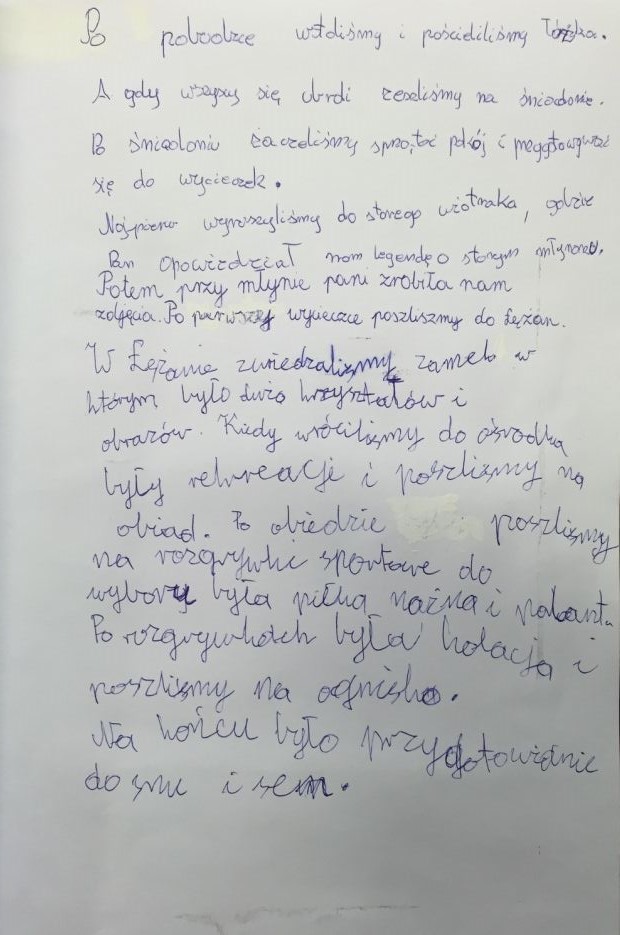 Po pobudce wstaliśmy i pościeliliśmy łóżka.
A gdy wszyscy się ubrali zeszliśmy na śniadanie.
Po śniadaniu zaczeliśmy sprzątać pokój i przygotowywać
się do wycieczek.
Najpierw wyruszyliśmy do starego wiatraka, gdzie
Pan opowiedział nam legendę o starym młynarzu.
Potem przy młynie pani zrobiła nam
zdjęcia. Po pierwszej wycieczce poszliszmy do Łężan.
W Łężanie zwiedzaliszmy zamek w
którym było dużo krzyształów i
obrazów. Kiedy wróciliszmy do ośrodka
były rekreacje i poszliszmy na
obiad. Po obiedzie poszliszmy
na rozgrywki sportowe do
wyboru była piłka nożna i palant.
Po rozgrywkach była kolacja i
poszliszmy na ognisko.
Na końcu było przygotowanie
do snu i sen.